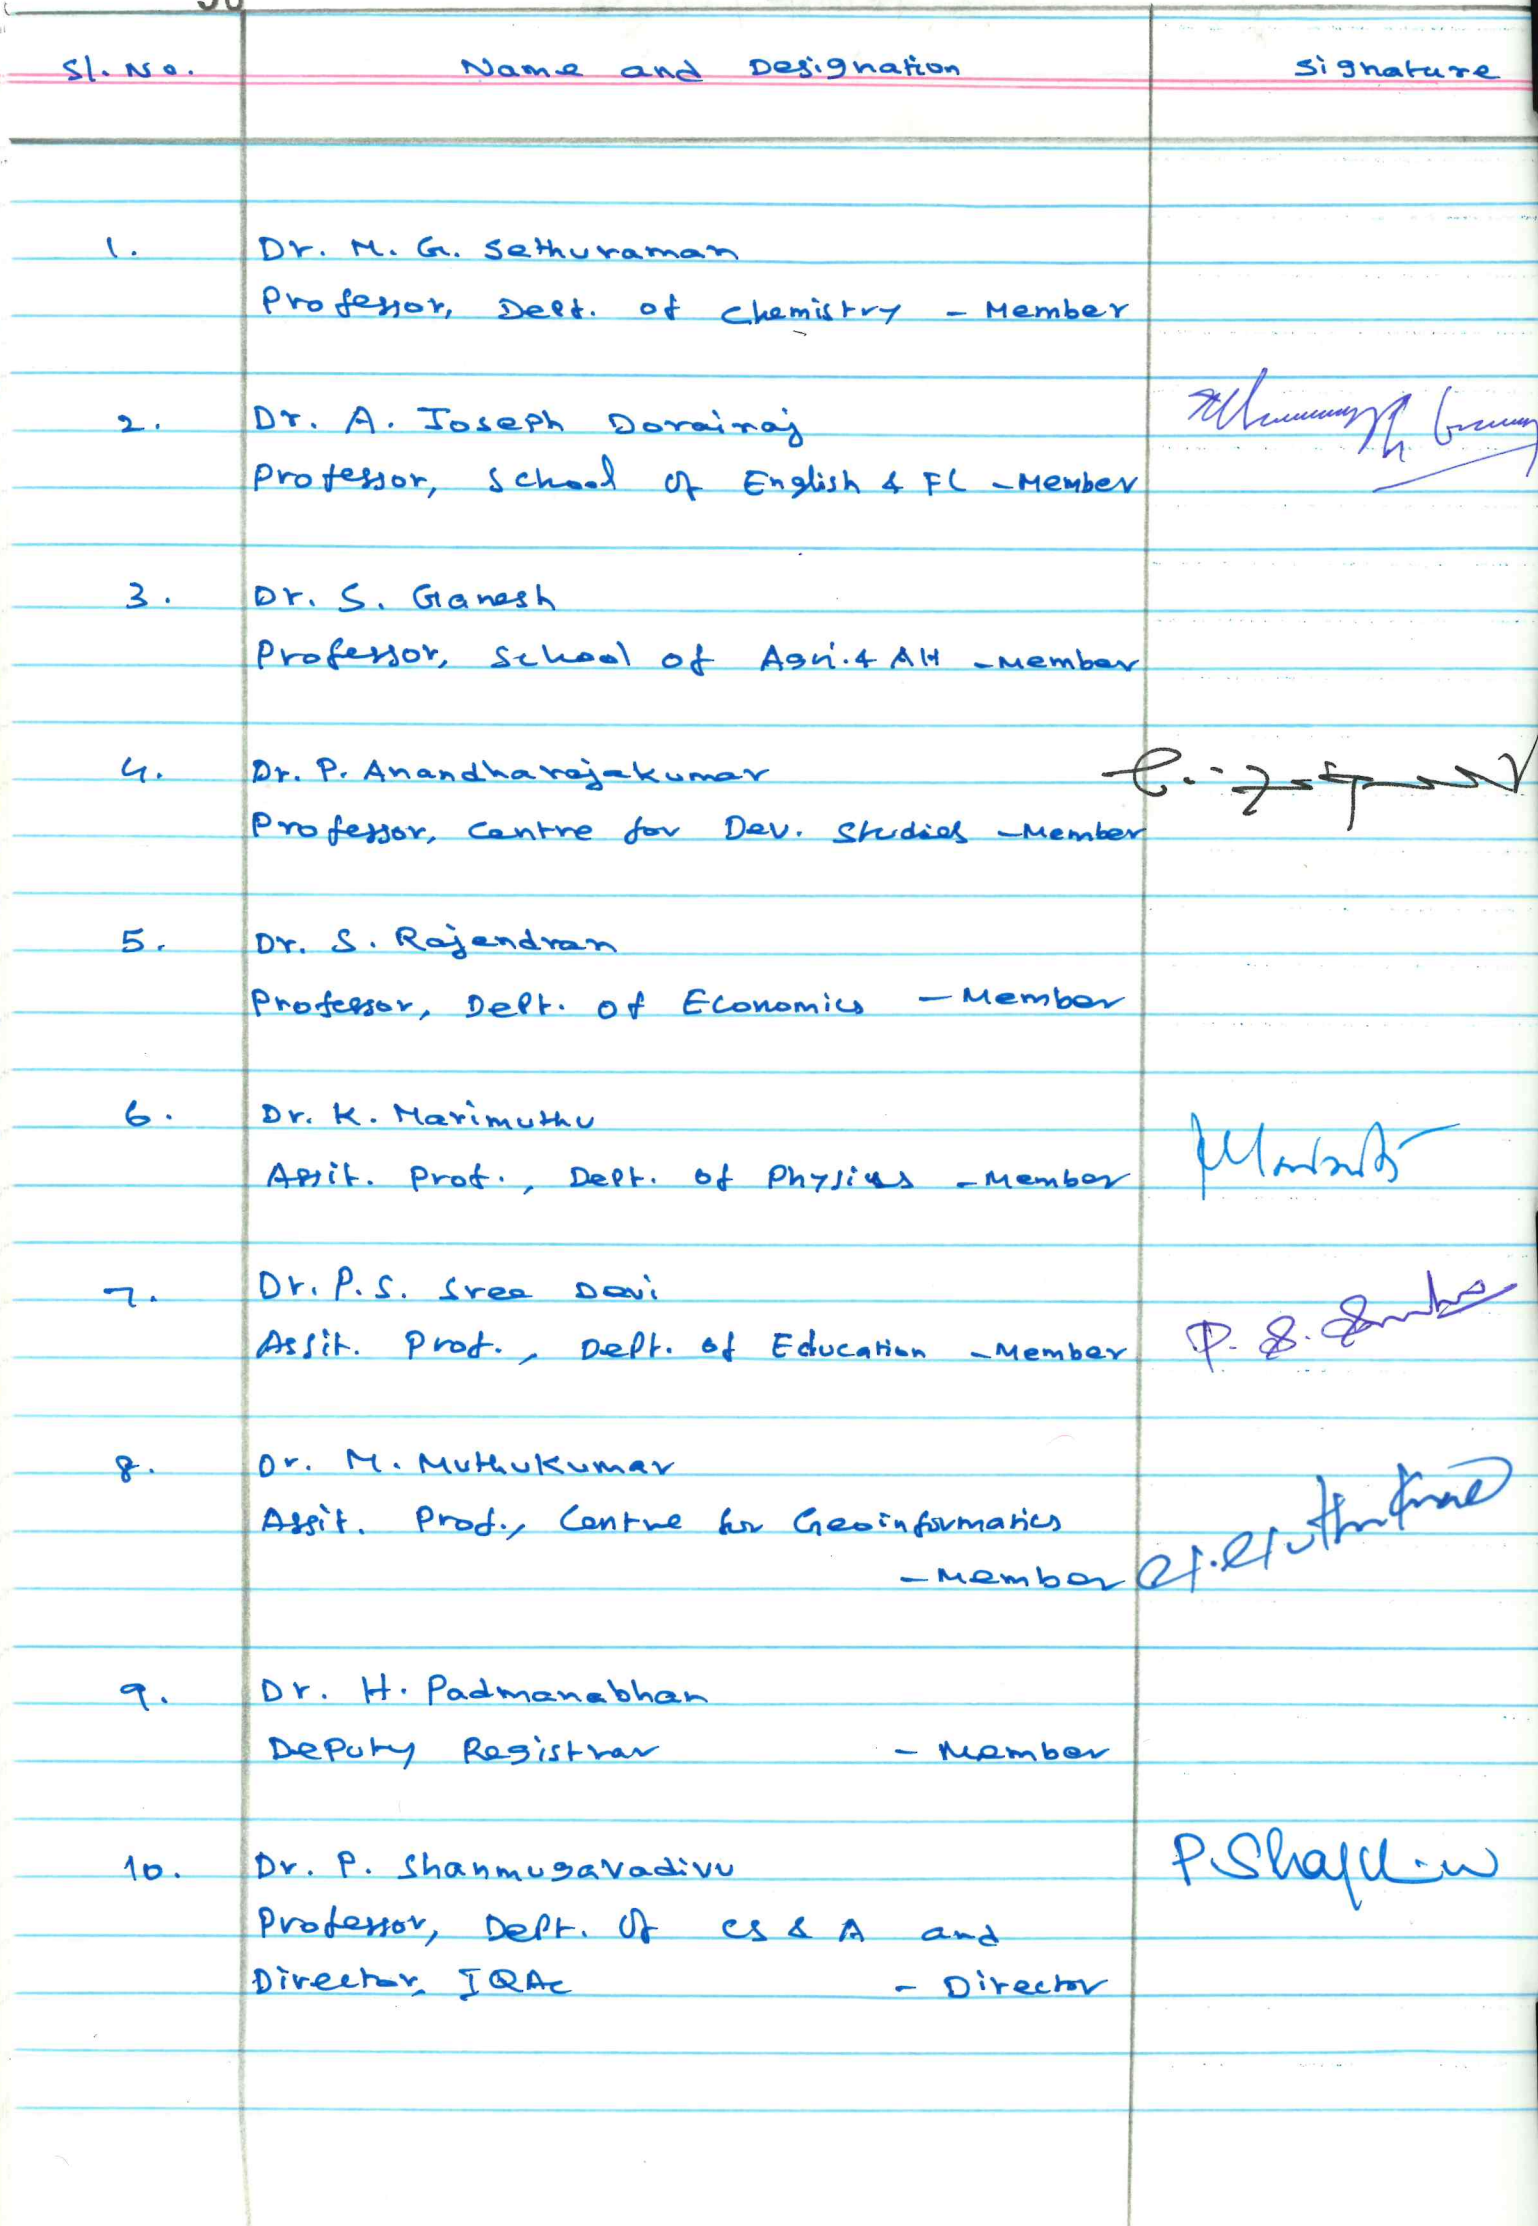 Sl. No. Name and Designation Signature
1. Dr. M. G. Sethuraman
Professor, Dept. of Chemistry - Member
2. Dr. A. Joseph Dorairaj
Professor, School of English & FL - Member
3. Dr. S. Ganesh
Professor, School of Agri. & AH - Member
4. Dr. P. Anandharajakumar
Professor, Centre for Dev. Studies - Member
5. Dr. S. Rajendran
Professor, Dept. of Economics - Member
6. Dr. K. Marimuthu
Assit. Prof., Dept. of Physics - Member
7. Dr. P.S. Sree Devi
Assit. Prof., Dept. of Education - Member
P. S.
8. Dr. M. Muthukumar
Assit. Prof., Centre for Geoinformatics
- Member
M. Muthukumar
9. Dr. H. Padmanabhan
Deputy Registrar - Member
10. Dr. P. Shanmugavadivu
Professor, Dept. of CS & A and
Director, IQAC - Director